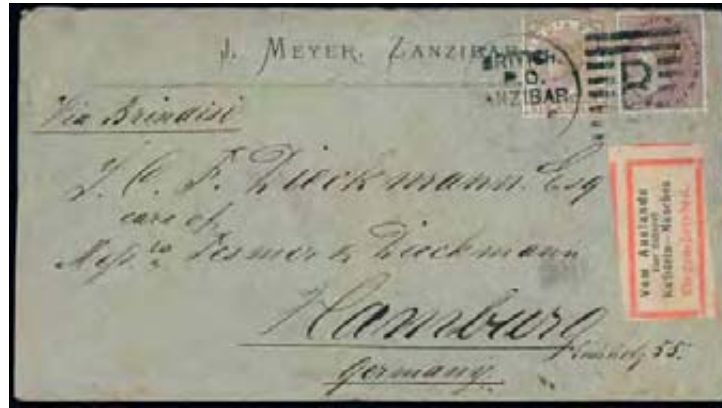 J. MEYER. ZANZIBAR
BRITISH.
P.O.
ANZIBAR
Via Brindisi
J. C. F. Dieckmann Esq
care of
Messrs Tesmer & Dieckmann
Hamburg
55.
Germany.
Vom Auslande
über Bahnpost
Kufstein-München
Eingeschrieben.